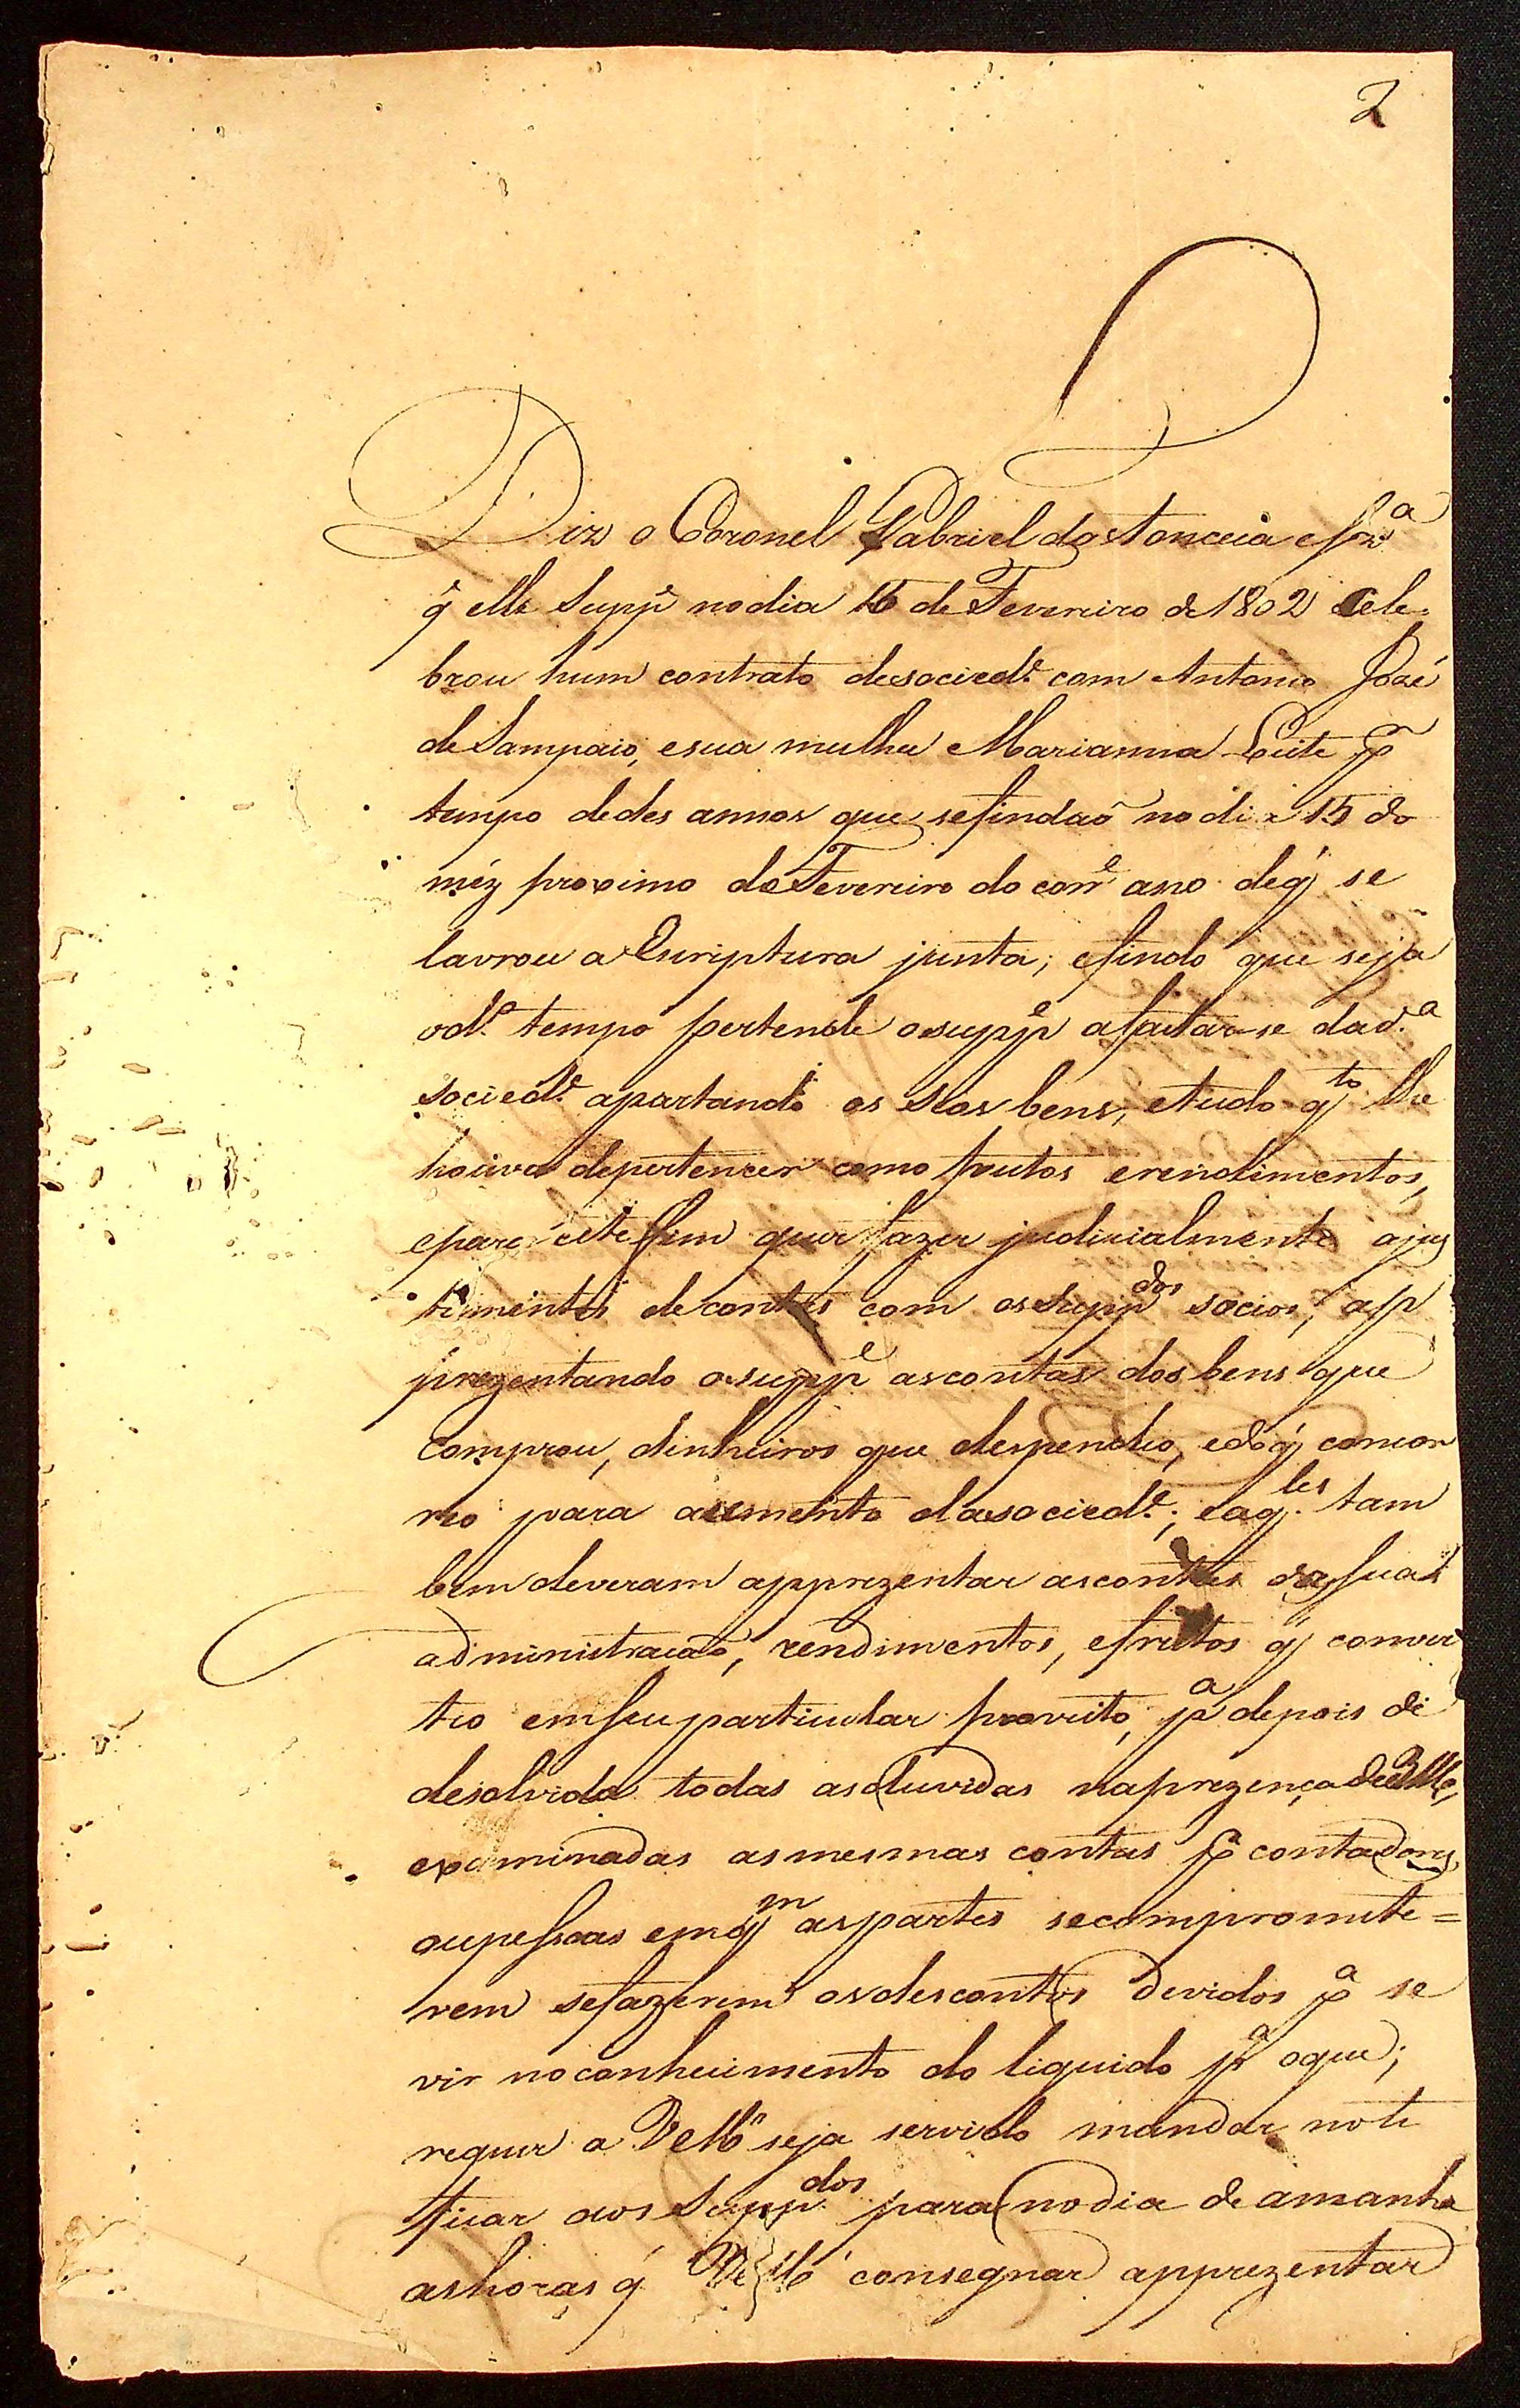 2
Diz o Coronel Gabriel da Fonceca e Sz.ª
q̃ elle Supp.e no dia 16 de Fevereiro de 1802 Cele-
brou hum contrato de socied.e com Antonio José
de Sampaio, e sua mulher Marianna Leite p̃
tempo de des annos que se findaõ no dia 15 do
méz proximo de Fevereiro do corr.e ano de q̃ se
lavrou a Escriptura junta; e findo que seja
o d.o tempo pertende o supp.e afastar-se da d.ª
socied.e apartando os seos bens, e tudo q.to lhe
houver de pertencer como frutos e rendimentos,
e para este fim quer fazer judicialmente ajus
tamentos de contas com os Supp.dos socios, ap
prezentando o supp.e as contas dos bens que
comprou, dinheiros que despendeo, e do q̃ concor
reo para aumento da socied.e; e aq.les tam
bem deveram apprezentar as contas da sua
administracaõ, rendimentos, e frutos q̃ conver
teo em seu particular proveito, p.ª depois de
desolvida todas as duvidas na prezença de VMce,
examinadas as mesmas contas p̃ contadores,
ou pessoas em q.m as partes se compromete=
rem se fazerem os descontos devidos p.ª se
vir no conhecimento do liquido p.ª o que;
requer a VMce seja servido mandar noti
ficar aos Supp.dos para no dia de amanha
as horas q̃ VMce consegnar apprezentar